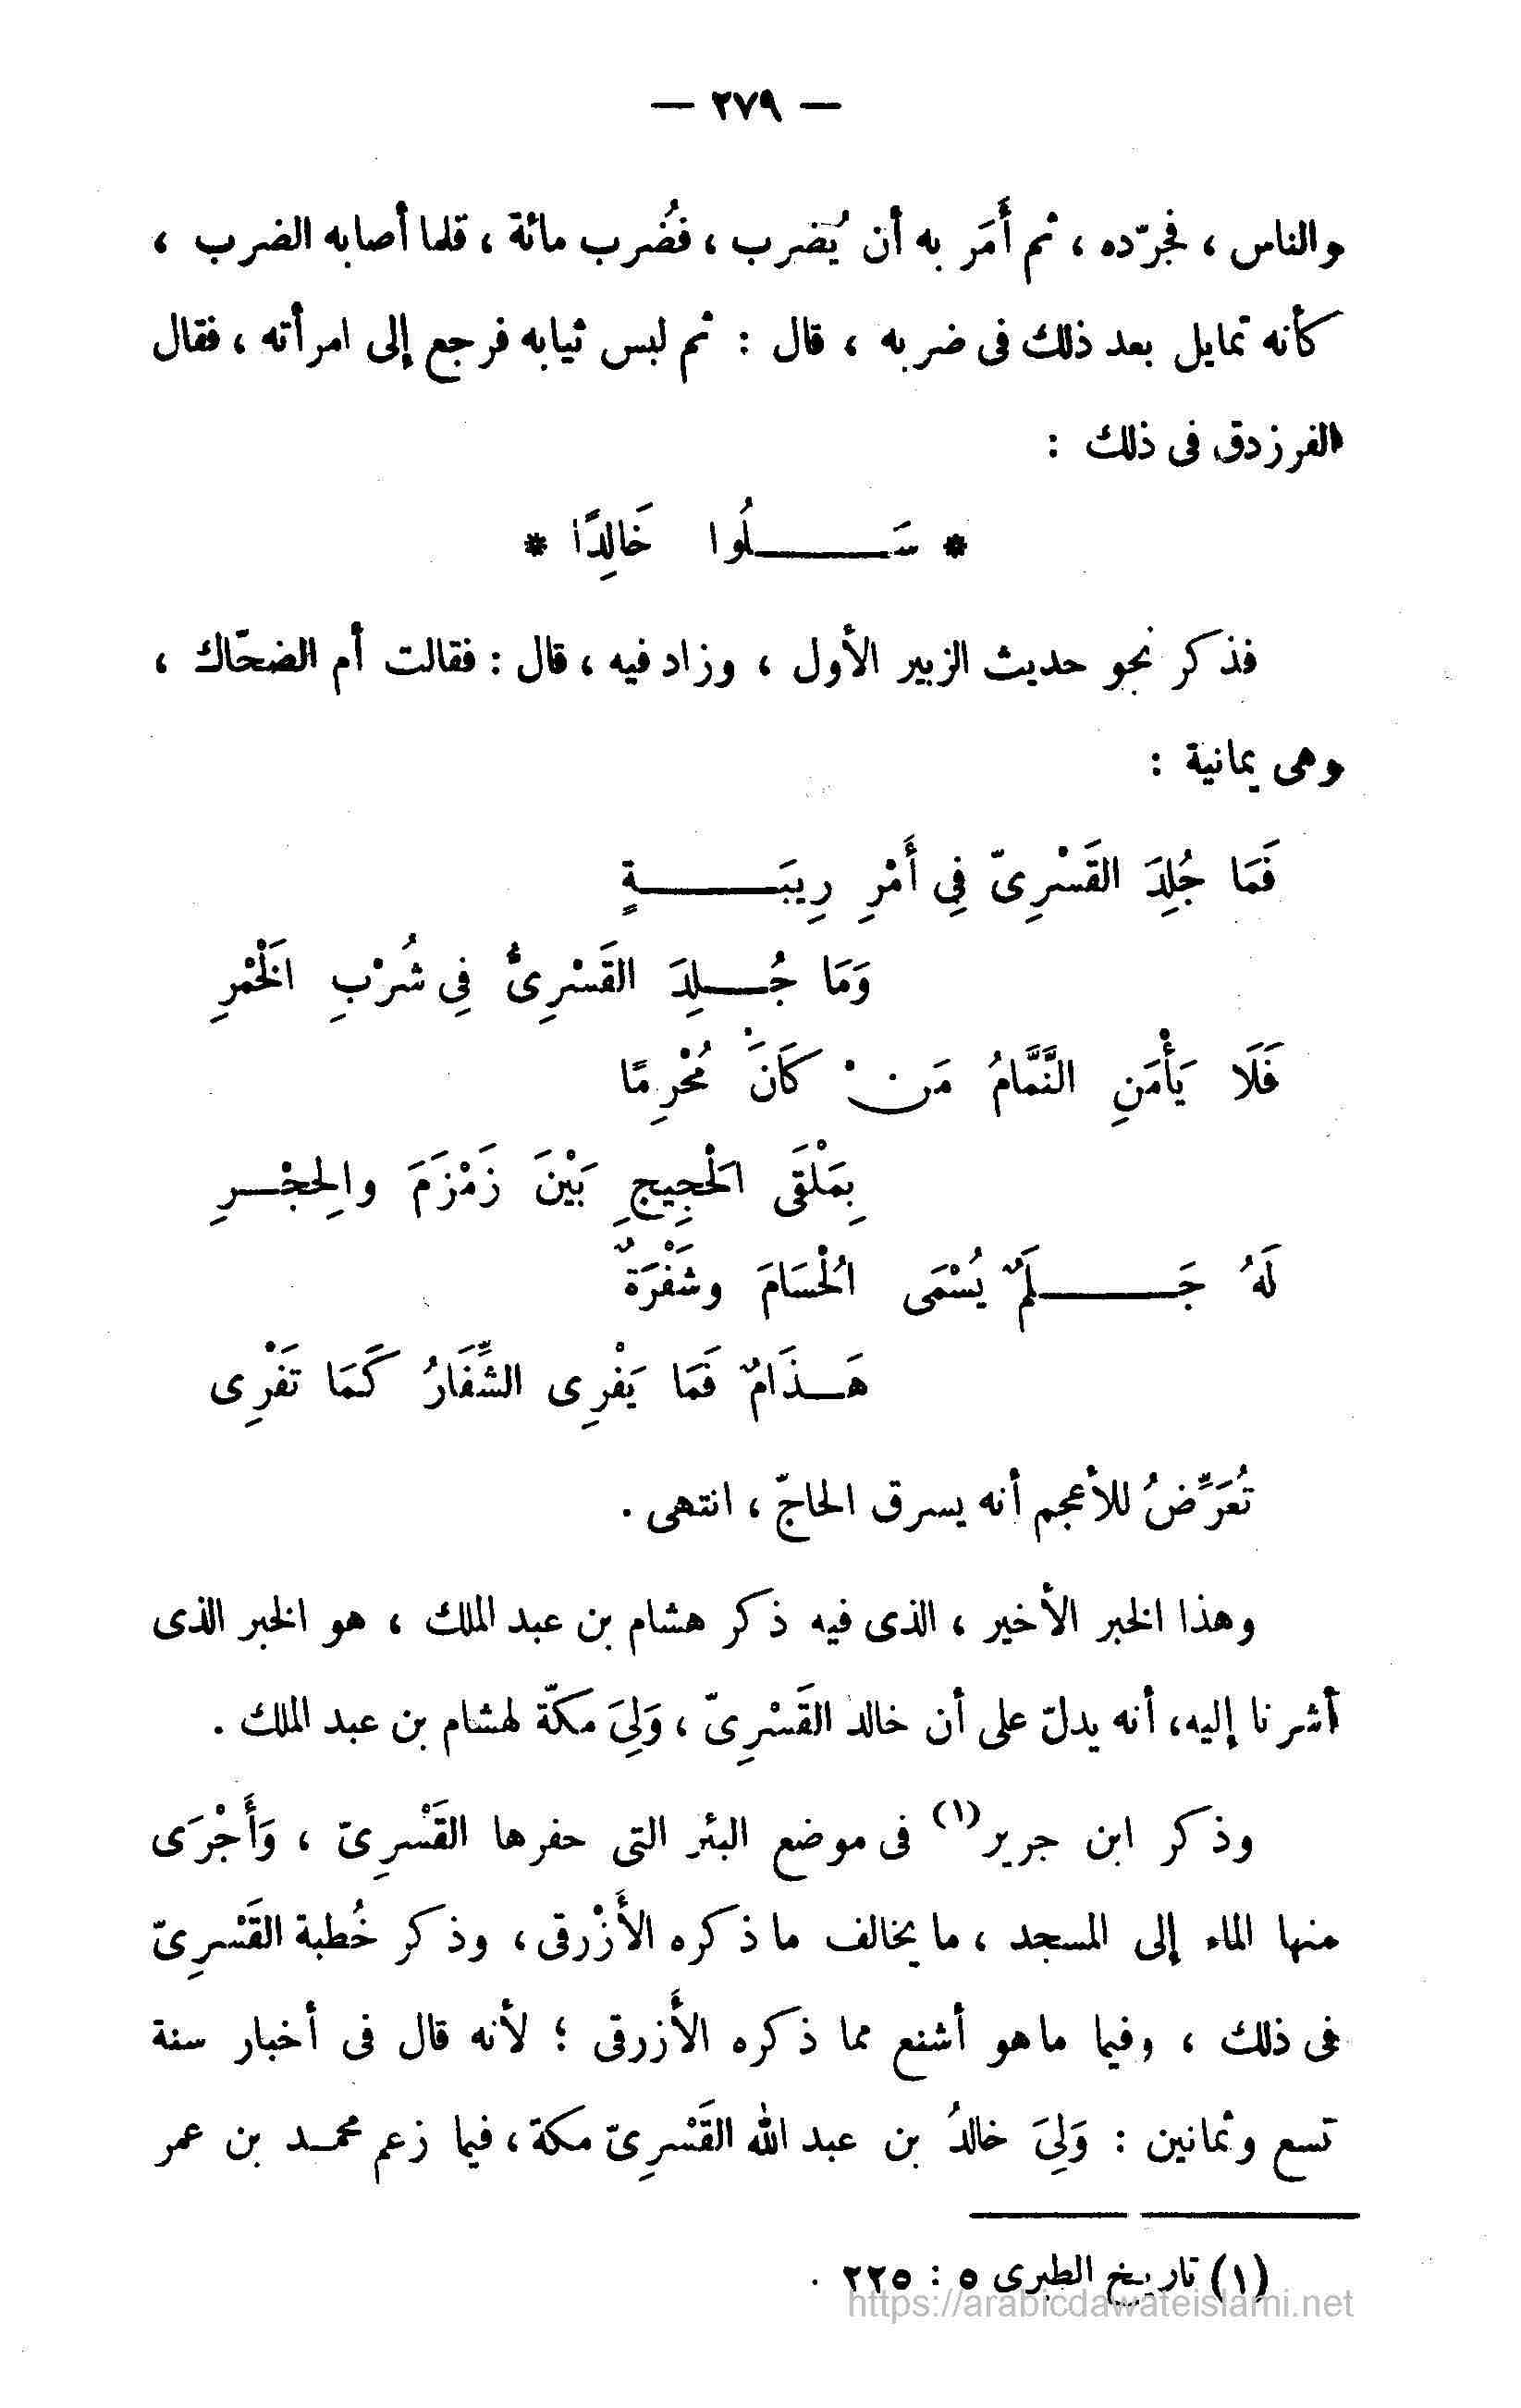 — ٢٧٩ —
والناس ، فجرّده ، ثم أَمَر به أن يُضرب ، فضُرب مائة ، قلما أصابه الضرب ،
كأنه تمايل بعد ذلك فى ضربه ، قال : ثم لبس ثيابه فرجع إلى امرأته ، فقال
الفرزدق فى ذلك :
* سَـــلُوا خَالِدًا *
فذكر نحو حديث الزبير الأول ، وزاد فيه ، قال : فقالت أم الضحّاك ،
وهى يمانية :
فَمَا جُلِدَ القَسْرِىّ فِي أَمْرِ رِيبَـــةٍ
وَمَا جُــلِدَ القَسْرِىُّ فِى شُرْبِ الَخْمْرِ
فَلَا يَأْمَنِ النَّمَّامُ مَنْ كَانَ مُحْرِمًا
بِمَلْقَى الَحْجِيجِ بَيْنَ زَمْزَمَ والِحجْــرِ
لَهُ جَـــلَمٌ يُسْمَى الُحْسَامَ وشَفْرَةٌ
هَــذَامٌ فَمَا يَفْرِى الشِّفَارُ كَمَا تَفْرِى
تُعَرِّضُ للأعجم أنه يسرق الحاجّ ، انتهى .
وهذا الخبر الأخير ، الذى فيه ذكر هشام بن عبد الملك ، هو الخبر الذى
أشرنا إليه، أنه يدلّ على أن خالد القَسْرِىّ ، وَلِىَ مكّة لهشام بن عبد الملك .
وذكر ابن جرير(١) فى موضع البئر التى حفرها القَسْرِىّ ، وَأَجْرَى
منها الماء إلى المسجد ، ما يخالف ما ذكره الأَزْرقى، وذكر خُطبة القَسْرِىّ
فى ذلك ، وفيما ماهو أشنع مما ذكره الأَزرقى ؛ لأنه قال فى أخبار سنة
تسع وثمانين : وَلِىَ خالدُ بن عبد الله القَسْرِىّ مكة، فيما زعم محمـد بن عمر
(١) تاريخ الطبرى ٥ : ٢٢٥ .
https://arabicdawateislami.net